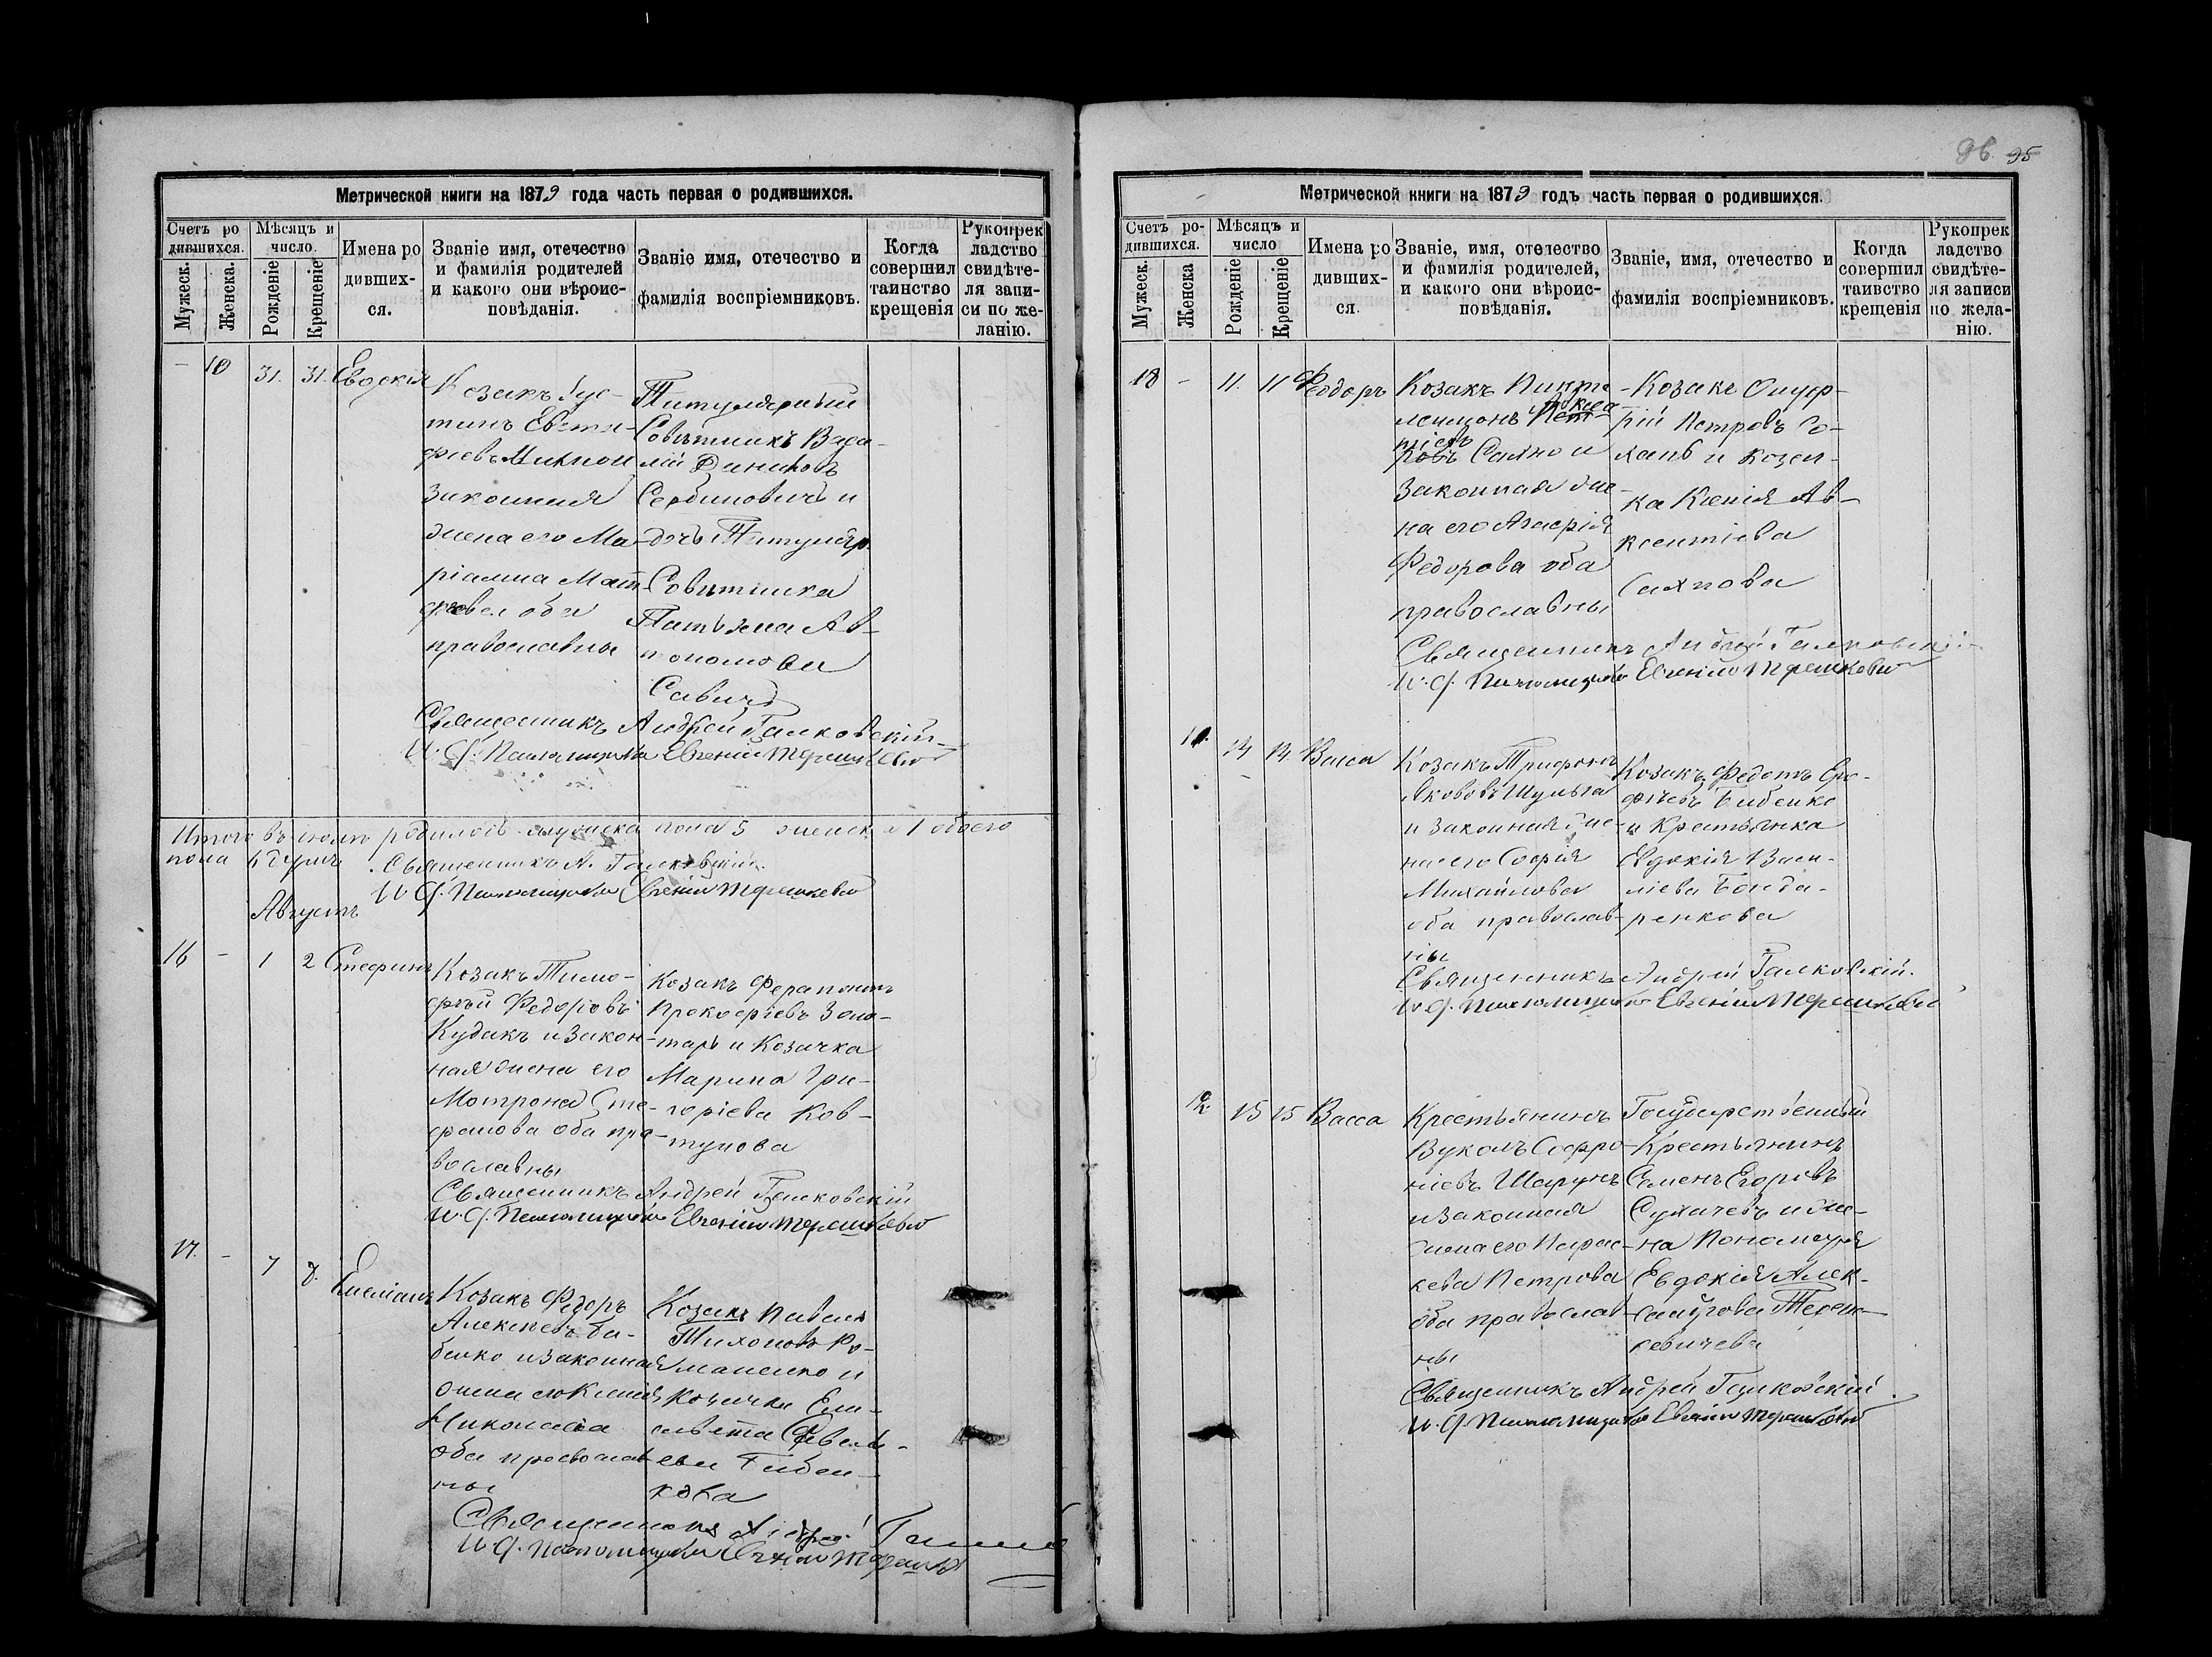 96. 95
Метрической книги на 1879 года часть первая о родившихся.
Счетъ ро
дившихся.
Мужеск.
Женска.
Мѣсяцъ и
число.
Рожденіе
Крещеніе
Имена ро
дивших-
ся.
Званіе имя, отечество
и фамилія родителей
и какого они вѣроис-
повѣданія.
Званіе имя, отечество и
фамилія воспріемниковъ.
Когда
совершил
таинство
крещенія
Рукопрек
ладство
свидѣте-
ля запи-
си по же-
ланію.
10 31. 31. Евдокія
Козакъ Іус-
тинъ Евста-
фіевъ
законная
жена его Ма-
ріамна Мат
фѣева оба
православны
Титулярный
Совѣтникъ
Сербиновичъ и
дочь Титуляр.
Совѣтника
Татьяна Ав-
тономова
Савичъ
Священникъ Андрей Галковскій
И. д. Псаломщика Евгеній Терешкевич
Итого въ іюлѣ родилось мужеска пола 5 женска 1 обоего
пола 6 душъ. Священникъ А. Галковскій.
И. д. Псаломщика Евгеній Терешкевич
Августъ
16 - 1 2 Стефанъ
Козакъ Тимо-
фѣй Федоровъ
Кудакъ и закон-
ная жена его
Мотрона Сте-
фанова оба пра-
вославны
Козакъ Ферапонтъ
Прокофіевъ Золо-
тарь и Козачка
Марина Гри-
горіева Ков-
тунова
Священникъ Андрей Галковскій
И. д. Псаломщика Евгеній Терешкевич
17. - 7 8. Емеліанъ
Козакъ Федоръ
Алексѣевъ Ба-
бенко и законная
жена его Ксенія
Николаева
оба православ
ны
Козакъ Павелъ
Тихоновъ Ро-
маненко и
козачка Ели-
савета Савель-
ева
кова
Священникъ Андрей
И. д. Псаломщика Евгеній
Метрической книги на 1879 годъ часть первая о родившихся.
Счетъ ро-
дившихся.
Мужеск.
Женска
Мѣсяцъ и
число
Рожденіе
Крещеніе
Имена ро
дивших-
ся.
Званіе, имя, отечество
и фамилія родителей,
и какого они вѣроис-
повѣданія.
Званіе, имя, отечество и
фамилія воспріемниковъ.
Когда
совершил
таивство
крещенія
Рукопрек
ладство
свидѣте-
ля записи
по жела-
нію.
18 - 11. 11 Феодоръ
Козакъ Панте
леимонъ
Сахно и
законная же-
на его Агафія
Федорова оба
православны
Козакъ Онуф-
рій Петровъ Со-
хань и козач-
ка Ксенія Ав-
ксентіева
Сахнова
Священникъ Андрей Галковскій
И. д. Псаломщика Евгеній Терешкевич
11. 14 14. Васса
Козакъ Трифонъ
Якововъ Шульга
и законная же-
на его Софія
Михайлова
оба православ-
ны
Козакъ Федотъ Еро-
фѣевъ Бабенко
и Крестьянка
Евдокія Васи-
ліева Бонда-
ренкова
Священникъ Андрей Галковскій.
И. д. Псаломщика Евгеній Терешкевич
12. 15 15 Васса
Крестьянинъ
Вуколъ Софро-
ніевъ Шарунъ
и законная
жена его Парас-
кева Петрова
оба православ
ны
Государственный
Крестьянинъ
Семенъ Егоровъ
Сухачевъ и же-
на Пономаря
Евдокія Алек-
сандрова Тереш-
кевичева
Священникъ Андрей Галковскій.
И. д. Псаломщика Евгеній Терешкевич